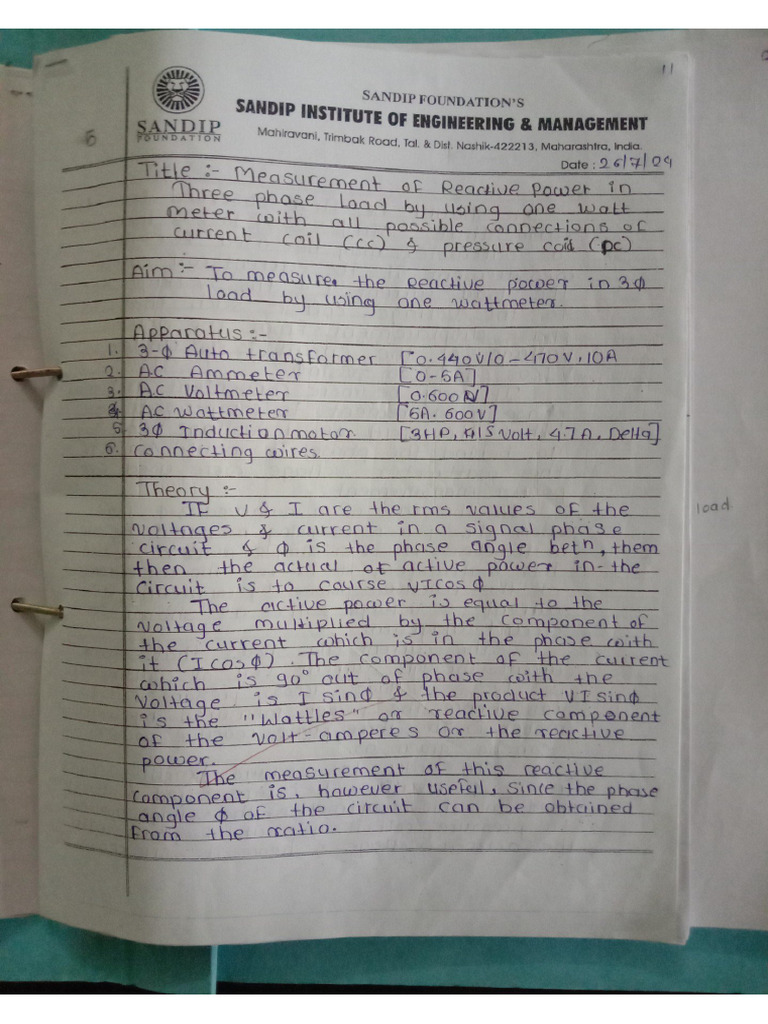 11
SANDIP FOUNDATION'S
SANDIP INSTITUTE OF ENGINEERING & MANAGEMENT
SANDIP
FOUNDATION
Mahiravani, Trimbak Road, Tal. & Dist. Nashik-422213, Maharashtra, India.
5
Date : 26/7/09
Title :- Measurement of Reactive Power in
Three phase load by using one watt
meter with all possible connections of
current coil (cc) & pressure coil (pc)
Aim :- To measure the Reactive power in 3φ
load by using one wattmeter.
Apparatus :-
1. 3-φ Auto transformer [0.440V/0-470V, 10A
2. AC Ammeter [0-5A]
3. AC Voltmeter [0.600V]
4. AC Wattmeter [5A. 600V]
5. 3φ Induction motor [3HP, 415 Volt, 4.7A, Delta]
6. Connecting wires.
Theory :-
If V & I are the rms values of the
load
voltages & current in a signal phase
circuit & φ is the phase angle betn, them
then the actual of active power in-the
circuit is to course VIcosφ
The active power is equal to the
voltage multiplied by the component of
the current which is in the phase with
it (Icosφ). The component of the current
which is 90° out of phase with the
voltage is I sinφ & the product VIsinφ
is the "Wattles" or reactive component
of the volt-amperes or the reactive
power.
The measurement of this reactive
component is, however useful, since the phase
angle φ of the circuit can be obtained
from the ratio.